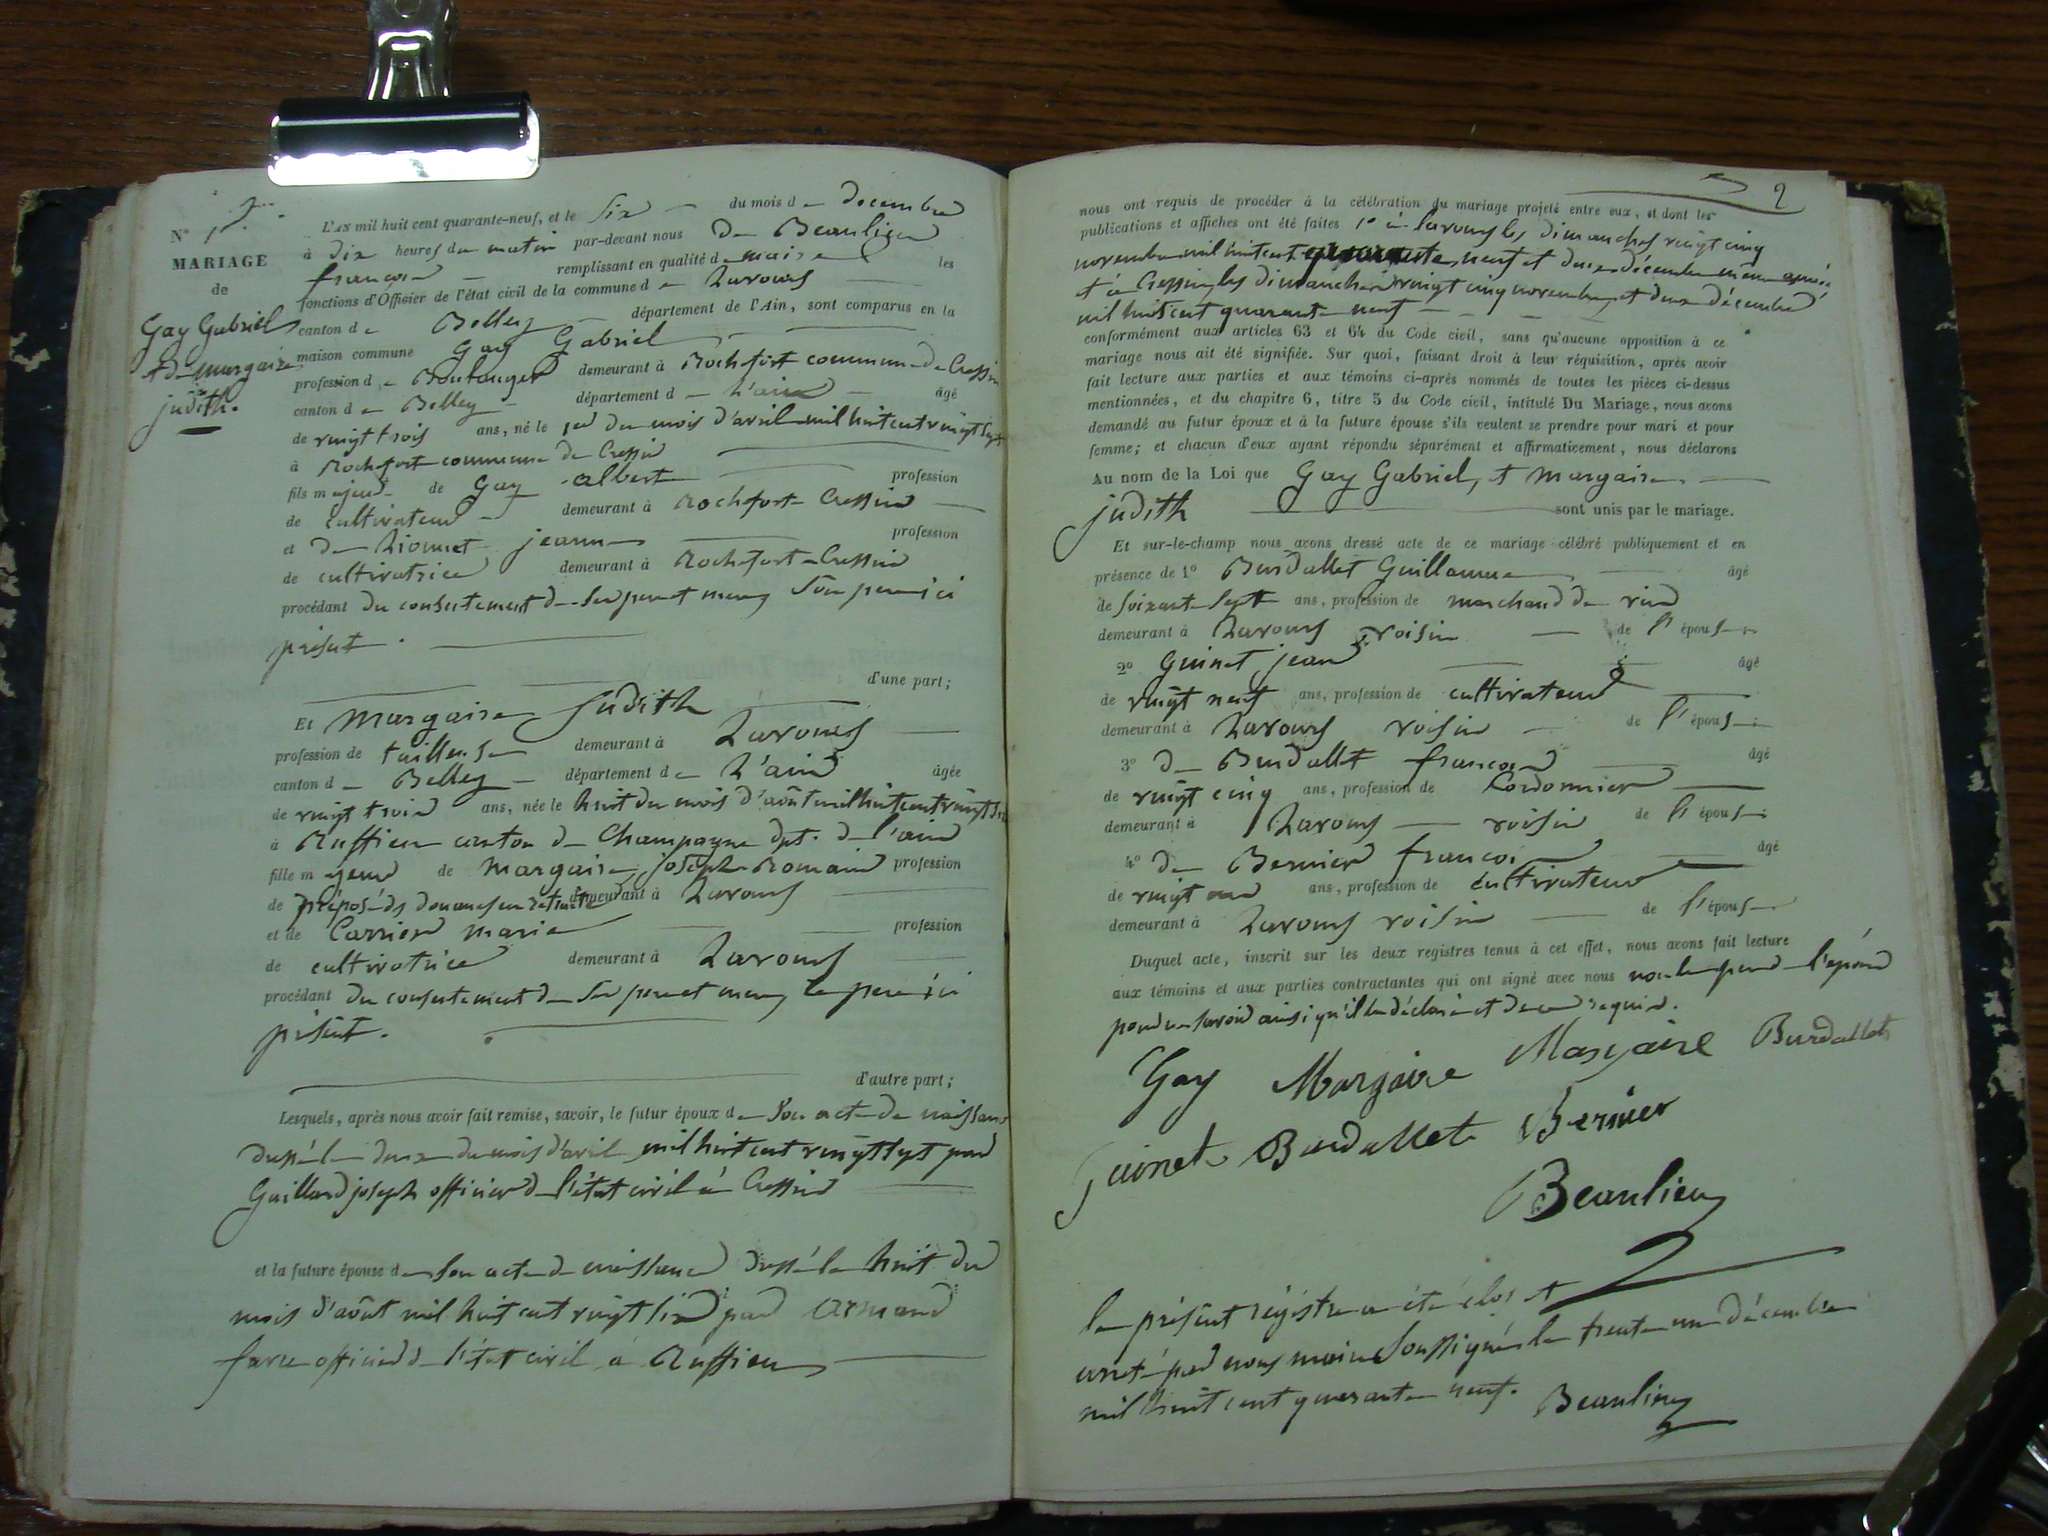 N° 1er
MARIAGE
de
Gay Gabriel
et de margaire
judith.
L'AN mil huit cent quarante-neuf, et le Six du mois de décembre
à dix heures du matin par-devant nous De Beaulieu
françois remplissant en qualité de maire les
fonctions d'Officier de l'état civil de la commune de Lavours
canton de Belley département de l'Ain, sont comparus en la
maison commune Gay Gabriel
profession de Boulanger demeurant à Rochefort commune de Cressin
canton de Belley département de L'ain âgé
de vingt trois ans, né le 1er du mois d'avril mil huit cent vingt sept
à Rochefort commune de Cressin
fils majeur de Gay albert profession
de cultivateur demeurant à Rochefort Cressin
et de Lionnet jeanne profession
de cultivatrice demeurant à Rochefort-Cressin
procédant du consentement de Ses pere et mere, Son pere ici
présent.
d'une part;
Et Margaire Judith
profession de tailleuse demeurant à Lavours
canton de Belley département de L'ain âgée
de vingt trois ans, née le huit du mois d'août mil huit cent vingt six
à Ruffieu canton de Champagne dpt. de l'ain
fille majeure de Margaire, joseph Romain profession
de préposé ds douanes en retraite demeurant à Lavours
et de Carrier marie profession
de cultivatrice demeurant à Lavours
procédant du consentement de Ses pere et mere, le pere ici
présent.
d'autre part;
Lesquels, après nous avoir fait remise, savoir, le futur époux de Son acte de naissance
dressé le deux du mois d'avril mil huit cent vingt sept par
Guilland joseph officier de l'état civil à Cressin
et la future épouse de Son acte de naissance dressé le huit du
mois d'août mil huit cent vingt six par Armand
favre officier de l'état civil à Ruffieu
2
nous ont requis de procéder à la célébration du mariage projeté entre eux, et dont les
publications et affiches ont été faites 1° à lavours les dimanches vingt cinq
novembre mil huit cent quarante neuf et deux décembre même année
et à Cressin les dimanches vingt cinq novembre et deux décembre
mil huit cent quarante neuf
conformément aux articles 63 et 64 du Code civil, sans qu'aucune opposition à ce
mariage nous ait été signifiée. Sur quoi, faisant droit à leur réquisition, après avoir
fait lecture aux parties et aux témoins ci-après nommés de toutes les pièces ci-dessus
mentionnées, et du chapitre 6, titre 5 du Code civil, intitulé Du Mariage, nous avons
demandé au futur époux et à la future épouse s'ils veulent se prendre pour mari et pour
femme; et chacun d'eux ayant répondu séparément et affirmativement, nous déclarons
Au nom de la Loi que Gay Gabriel, et Margaire
judith sont unis par le mariage.
Et sur-le-champ nous avons dressé acte de ce mariage célébré publiquement et en
présence de 1° Burdallet Guillaume âgé
de Soixante Sept ans, profession de marchand de vin
demeurant à Lavours voisin de l'épouse
2° Guinet jean âgé
de vingt neuf ans, profession de cultivateur
demeurant à Lavours voisin de l'épouse
3° De Burdallet françois âgé
de vingt cinq ans, profession de Cordonnier
demeurant à Lavours voisin de l'épouse
4° De Bernier françois âgé
de vingt un ans, profession de cultivateur
demeurant à Lavours voisin de l'épouse
Duquel acte, inscrit sur les deux registres tenus à cet effet, nous avons fait lecture
aux témoins et aux parties contractantes qui ont signé avec nous non le pere de l'époux
pour ne savoir ainsi qu'il l'a déclaré et de ce requis.
Gay Margaire Margaire Burdallet
Guinet Burdallet Bernier
Beaulieu
le présent régistre a été clos et
arreté par nous maire Soussigné le trente un décembre
mil huit cent quarante neuf. Beaulieu